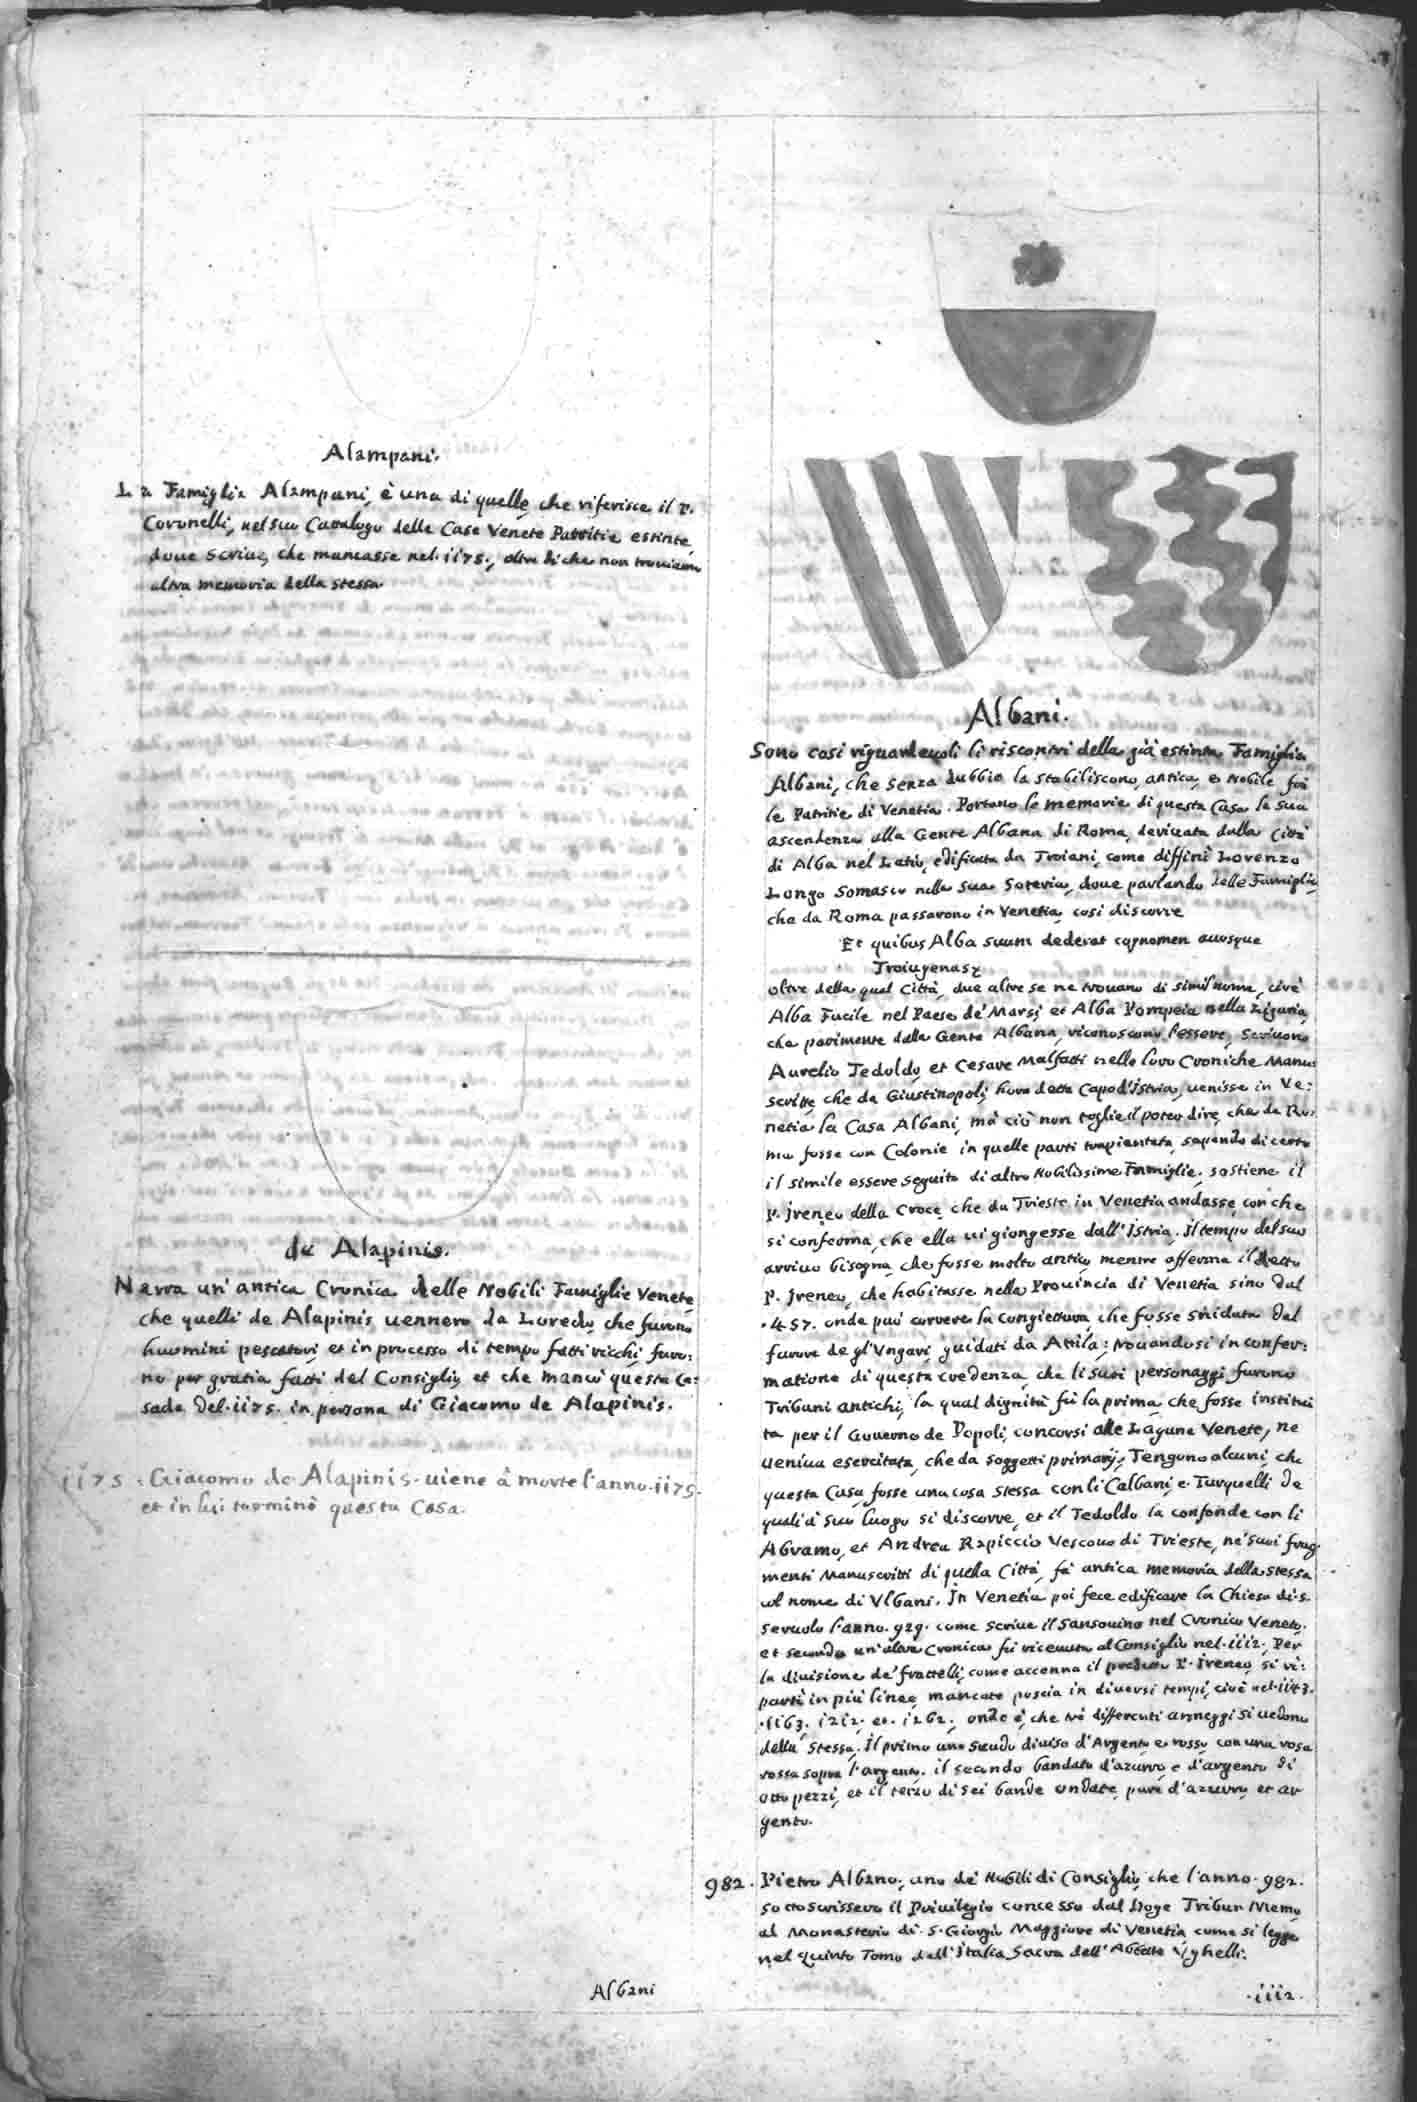 Alampani.
La Famiglia Alampani, è una di quelle che riferisce il P.
Coronelli, nel suo Catalogo delle Case Venete Patritie estinte,
doue scriue, che mancasse nel. 1175., oltre di che non trouiamo
altra memoria della stessa.
de Alapinis.
Narra un'antica Cronica delle Nobili Famiglie Venete
che quelli de Alapinis uennero da Loredo, che furono
huomini pescatori, et in processo di tempo fatti ricchi, furo:
no per gratia fatti del Consiglio, et che mancò questa Ca:
sada del. 1175. in persona di Giacomo de Alapinis.
1175. Giacomo de Alapinis. uiene à morte l'anno. 1175.
et in lui terminò questa Casa.
Albani
Albani.
Sono cosi riguardeuoli li riscontri della già estinta Famiglia
Albani, che senza dubbio la stabiliscono, antica, e Nobile frà
le Patritie di Venetia. Portano le memorie di questa Casa la sua
ascendenza alla Gente Albana di Roma, deriuata dalla Città
di Alba nel Latio, edificata da Troiani, come diffinì Lorenzo
Longo Somasco nella sua Soteria, doue parlando delle Famiglie,
che da Roma passarono in Venetia, cosi discorre
Et quibus Alba suum dederat cognomen auosque
Troiugenas;
oltre della qual Città, due altre se ne trouano di simil nome, cioè
Alba Fucile nel Paese de' Marsi, et Alba Pompeia nella Liguria,
che parimente dalla Gente Albana, riconoscono l'essere, scriuono
Aurelio Tedoldo, et Cesare Malfatti nelle loro Croniche Manu:
scritte, che da Giustinopoli, hora detta Capod'Istria, uenisse in Ve:
netia la Casa Albani, mà ciò non toglie il poter dire, che da Ro:
ma fosse con Colonie in quelle parti trapiantata, sapendo di certo
il simile essere seguito di altre Nobilissime Famiglie. sostiene il
P. Ireneo della Croce, che da Trieste in Venetia andasse, con che
si conferma, che ella ui giongesse dall'Istria. Il tempo del suo
arriuo bisogna, che fosse molto antico, mentre afferma il detto
P. Ireneo, che habitasse nella Prouincia di Venetia sino dal
.457. onde può correre la congiettura, che fosse snidata dal
furore de gl'Vngari, guidati da Attila: trouandosi in confer:
matione di questa credenza, che li suoi personaggi furono
Tribuni antichi, la qual dignità fù la prima, che fosse institui
ta per il Gouerno de Popoli, concorsi alle Lagune Venete, ne
ueniua esercitata, che da soggetti primarij. Tengono alcuni, che
questa Casa fosse una cosa stessa con li Calbani, e Turquelli de
quali à suo luogo si discorre, et il Tedoldo la confonde con li
Abramo, et Andrea Rapiccio Vescouo di Trieste, ne' suoi frag
menti Manuscritti di quella Città, fà antica memoria della stessa
col nome di Vlbani. In Venetia poi fece edificare la Chiesa di. S.
Seruolo l'anno. 929. come scriue il Sansouino nel Cronico Veneto.
et secondo un'altra Cronica fù riceuuta al Consiglio nel. 1112. Per
la diuisione de' fratelli, come accenna il predetto P. Ireneo, si ri:
partì in più linee, mancate poscia in diuersi tempi, cioè nel. 1143.
.1163. 1212. et. 1262., onde è, che trè differenti armeggi si uedono
della stessa. Il primo uno scudo diuiso d'Argento e rosso, con una rosa
rossa sopra l'argento. il secondo bandato d'azurro, e d'argento di
otto pezzi, et il terzo di sei bande ondate, pure d'azurro, et ar
gento.
982. Pietro Albano, uno de' Nobili di Consiglio, che l'anno. 982.
sottoscrissero il Priuilegio concesso dal Doge Tribun Memo
al Monasterio di. S. Giorgio Maggiore di Venetia, come si legge
nel quinto Tomo dell'Italia Sacra dell'Abbate Vghelli.
.1112.